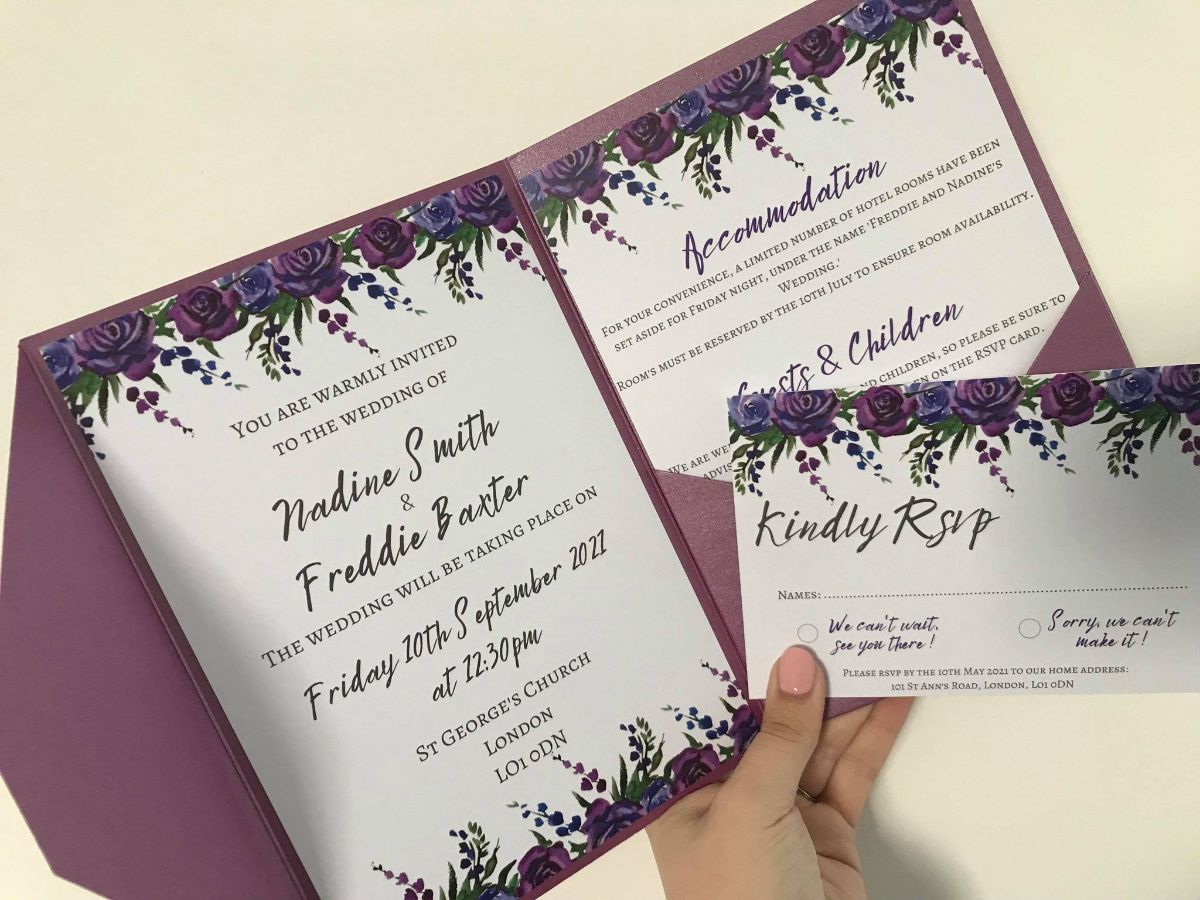 YOU ARE WARMLY INVITED
TO THE WEDDING OF
Nadine Smith
&
Freddie Baxter
THE WEDDING WILL BE TAKING PLACE ON
Friday 10th September 2021
at 12:30pm
ST GEORGE'S CHURCH
LONDON
LO1 0DN
Accommodation
FOR YOUR CONVENIENCE, A LIMITED NUMBER OF HOTEL ROOMS HAVE BEEN
SET ASIDE FOR FRIDAY NIGHT, UNDER THE NAME 'FREDDIE AND NADINE'S
WEDDING.'
ROOM'S MUST BE RESERVED BY THE 10TH JULY TO ENSURE ROOM AVAILABILITY.
Guests & Children
CHILDREN, SO PLEASE BE SURE TO
ON THE RSVP CARD.
WE ARE
Kindly Rsvp
NAMES:
We can't wait,
see you there!
Sorry, we can't
make it!
PLEASE RSVP BY THE 10TH MAY 2021 TO OUR HOME ADDRESS:
101 ST ANN'S ROAD, LONDON, LO1 0DN